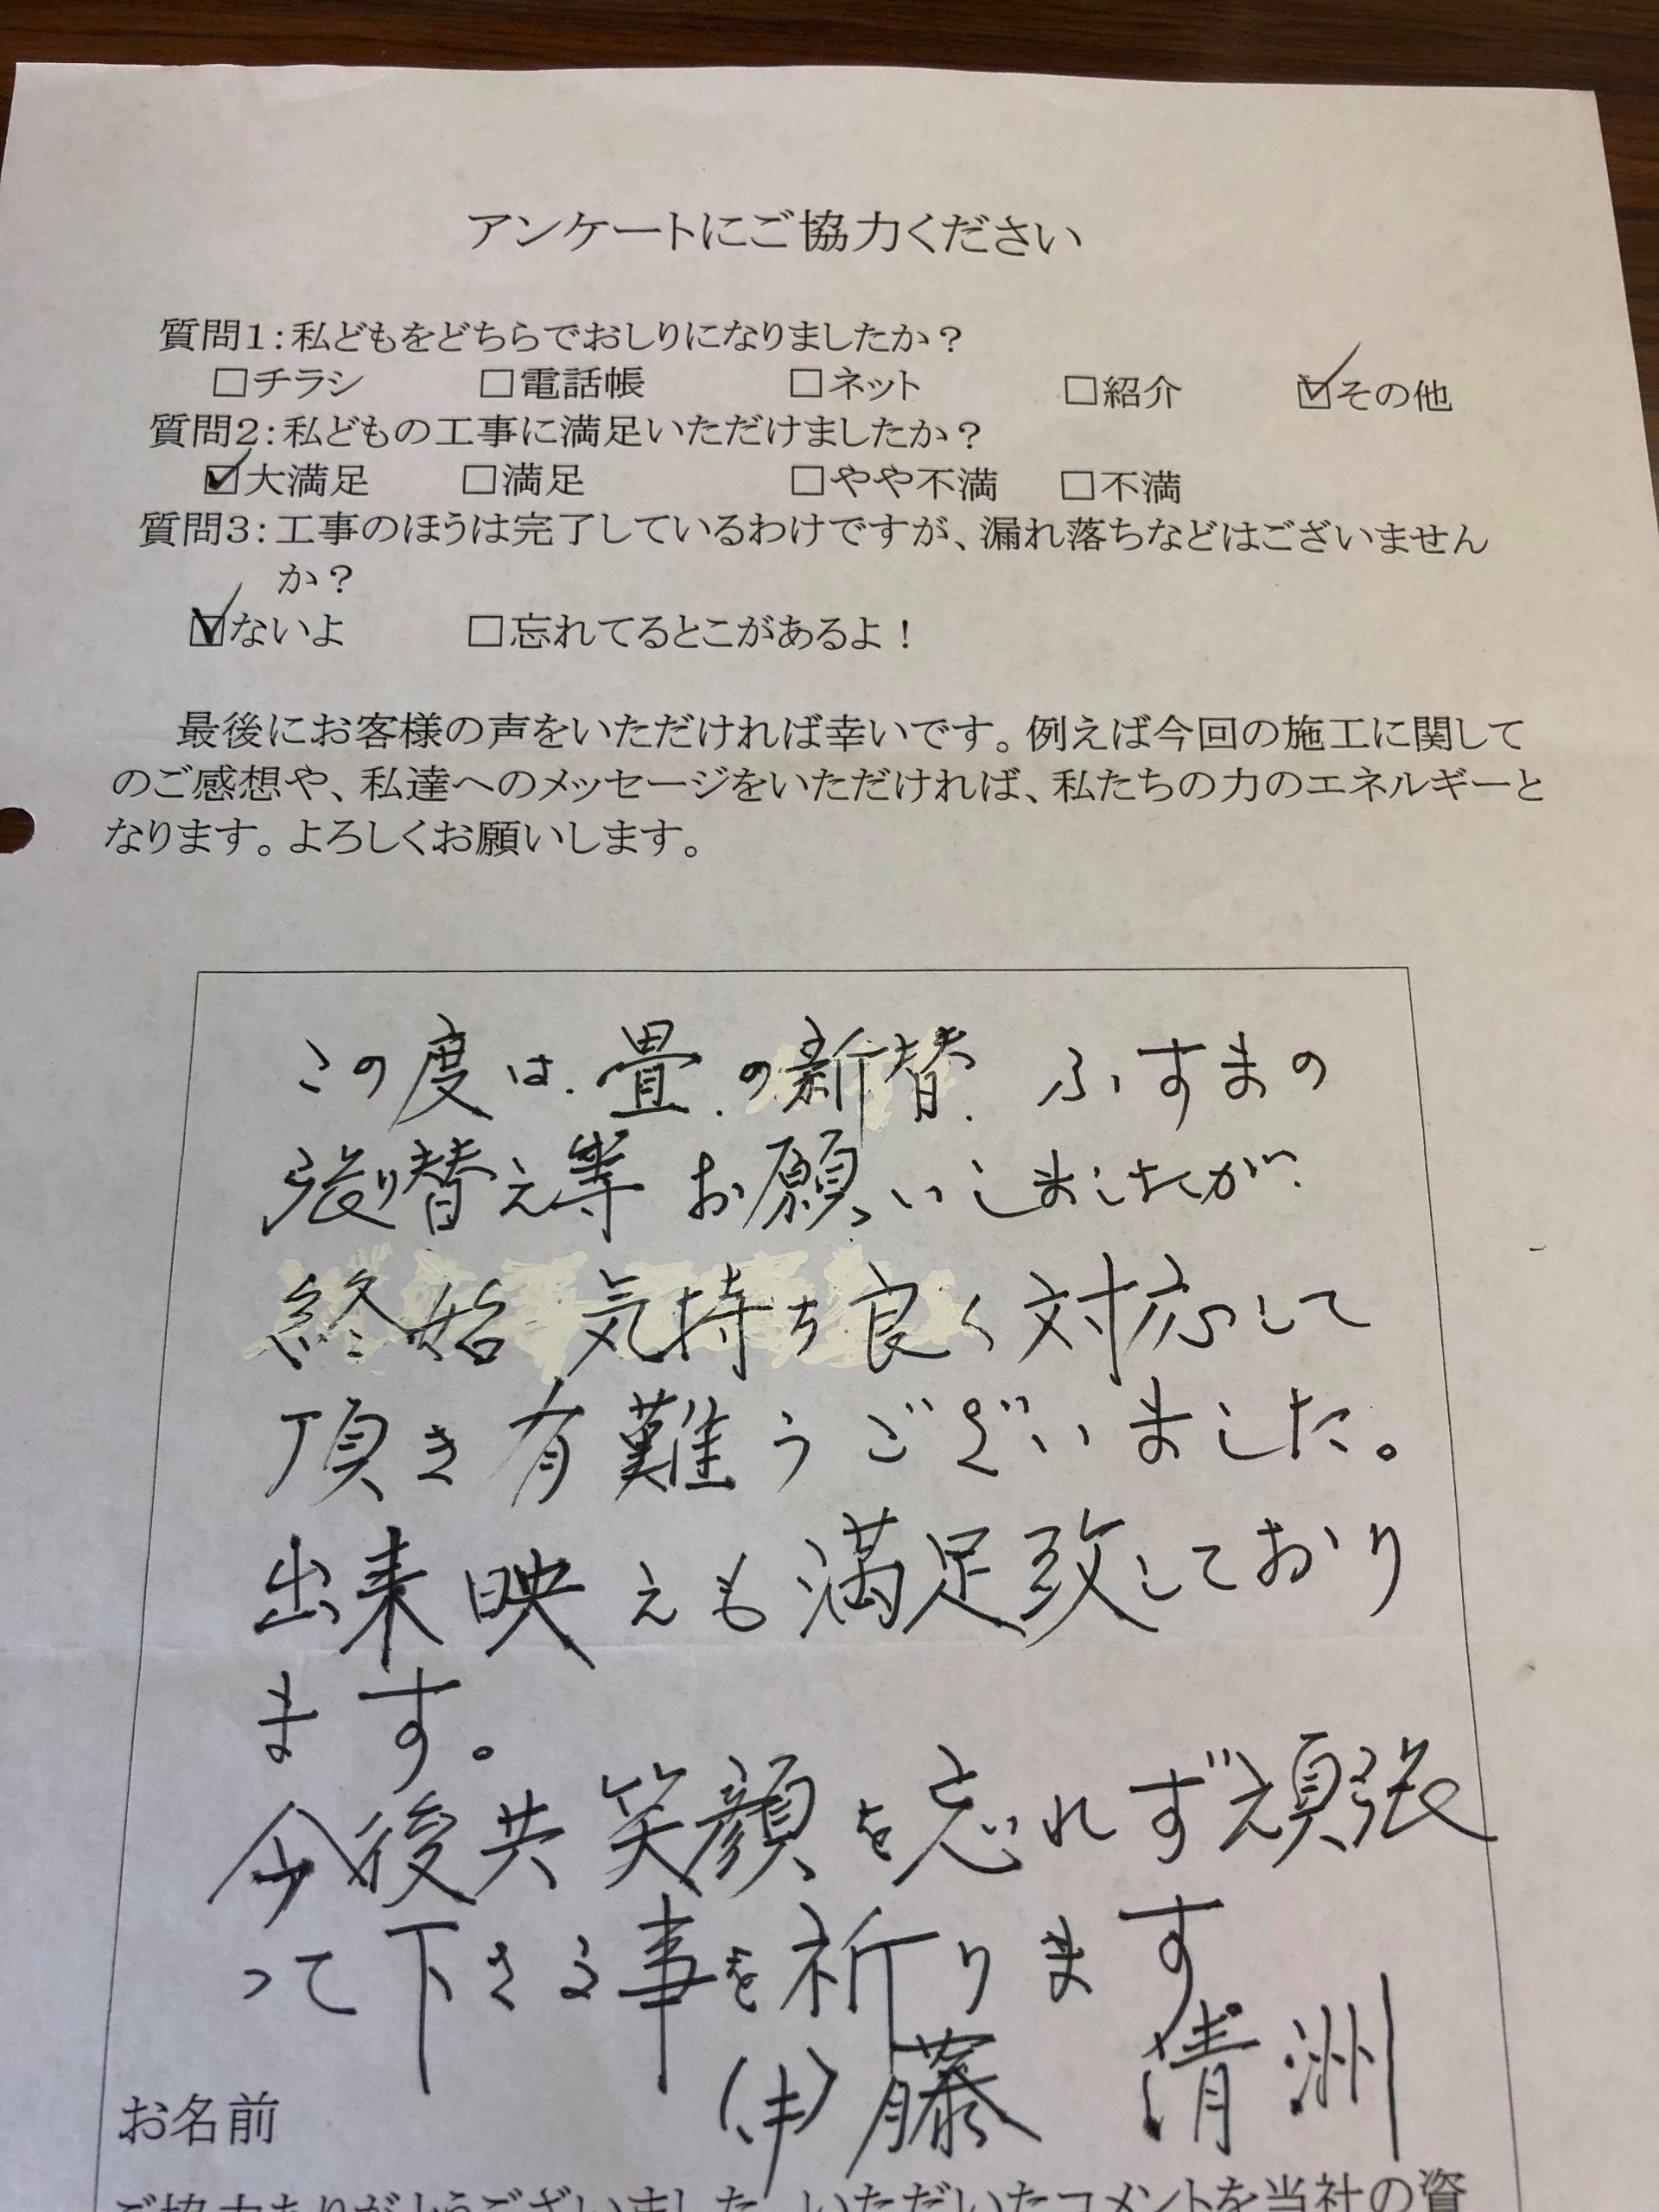 アンケートにご協力ください
質問1:私どもをどちらでおしりになりましたか?
□チラシ □電話帳 □ネット □紹介 ☑その他
質問2:私どもの工事に満足いただけましたか?
☑大満足 □満足 □やや不満 □不満
質問3:工事のほうは完了しているわけですが、漏れ落ちなどはございません
か?
☑ないよ □忘れてるとこがあるよ!
最後にお客様の声をいただければ幸いです。例えば今回の施工に関して
のご感想や、私達へのメッセージをいただければ、私たちの力のエネルギーと
なります。よろしくお願いします。
この度は、畳、の新替、ふすまの
張り替え等お願いしましたが、
終始気持ち良く対応して
頂き有難うございました。
出来映えも満足致しており
ます。
今後共笑顔を忘れず頑張
って下さる事を祈ります。
お名前 伊藤 清洲
ご協力ありがとうございました。いただいたコメントを当社の資